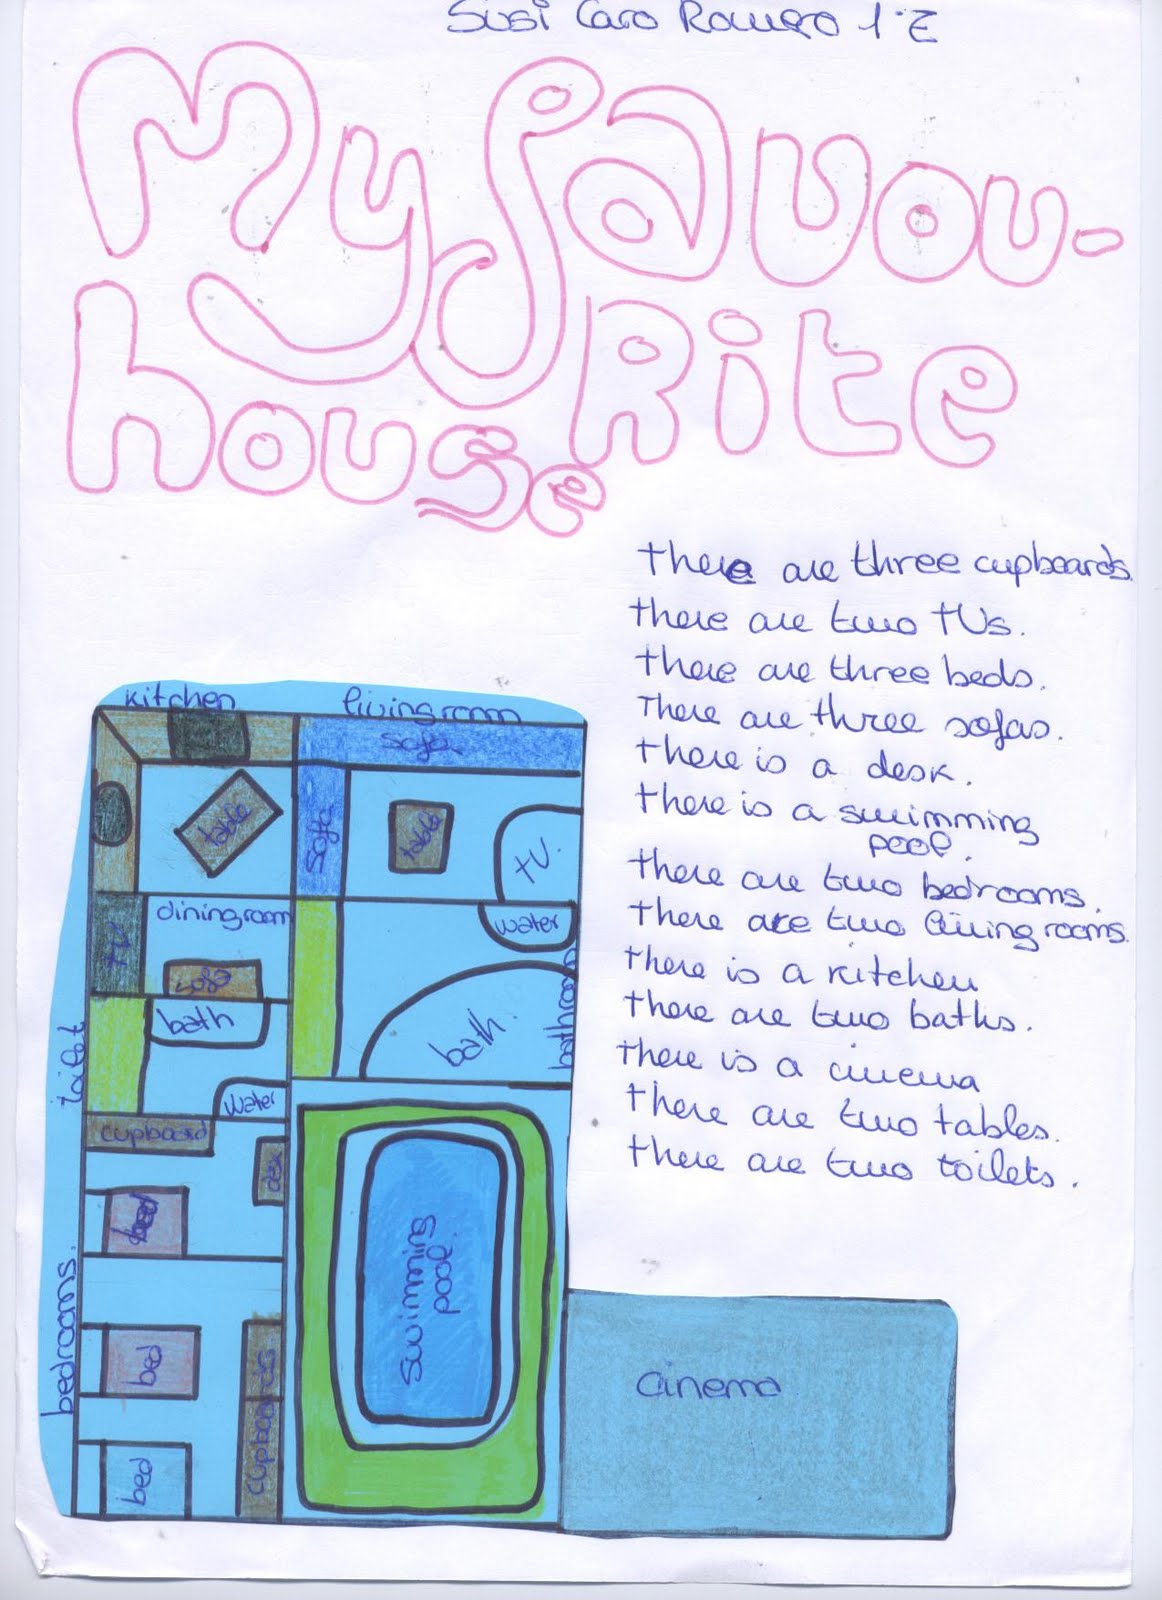 Susi Caro Romero 1ºE
My favou-
Rite
house
there are three cupboards.
there are two TVs.
there are three beds.
There are three sofas.
there is a desk.
there is a swimming
pool.
there are two bedrooms.
there are two living rooms.
there is a kitchen
there are two baths.
there is a cinema
there are two tables.
there are two toilets.
kitchen
livingroom
sofa
table
sofa
table
TV.
diningroom
TV
sofa
water
bath
bath.
bathroom
toilet
water
cupboard
desk
bed
bedrooms.
bed
cupboards
bed
swimming
pool.
cinema